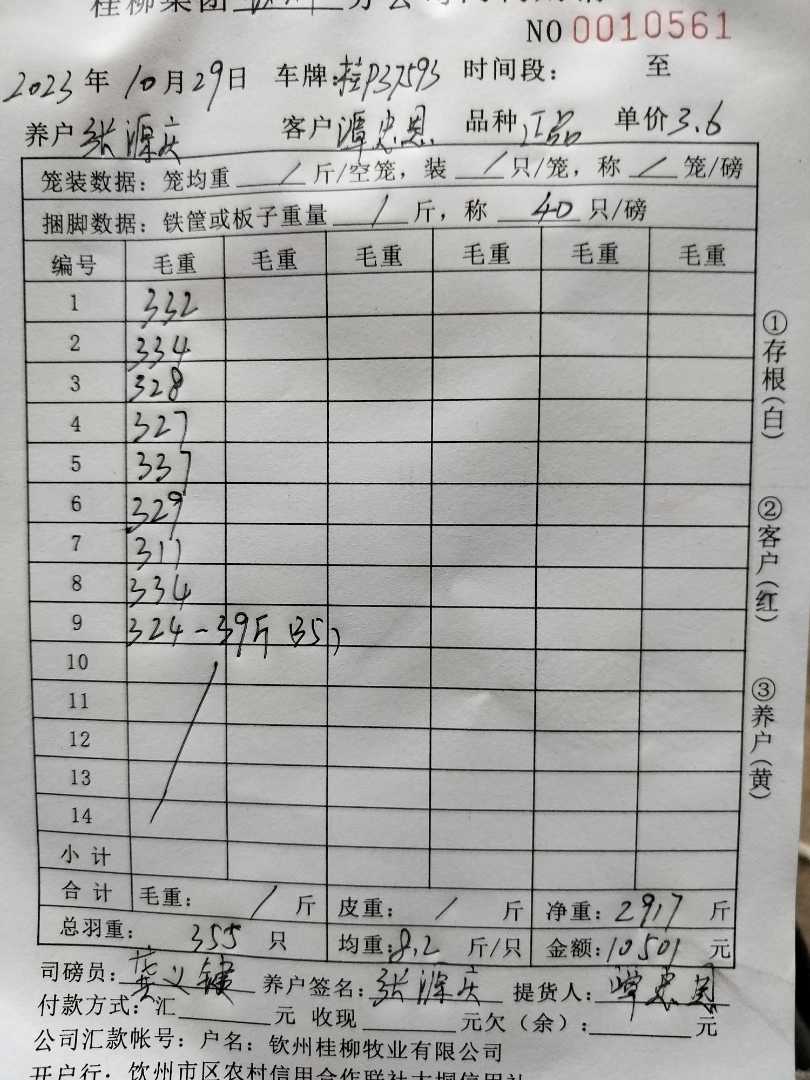 桂柳集团 分公司
NO 0010561
2023年10月29日 车牌:桂P37593 时间段: 至
养户 张源庆 客户 潭忠恩 品种 正品 单价 3.6
笼装数据:笼均重 / 斤/空笼,装 / 只/笼,称 / 笼/磅
捆脚数据:铁筐或板子重量 / 斤,称 40 只/磅
编号 毛重 毛重 毛重 毛重 毛重 毛重
1 332
2 334
3 328
4 327
5 337
6 329
7 311
8 334
9 324-39斤(35)
10
11
12
13
14
小计
合计 毛重: / 斤 皮重: / 斤 净重:2917 斤
总羽重: 355 只 均重:8.2 斤/只 金额:10501 元
司磅员: 养户签名:张源庆 提货人:
付款方式:汇 元 收现 元欠(余): 元
公司汇款帐号:户名:钦州桂柳牧业有限公司
开户行:钦州市区农村信用合作联社大垌信用社
①存根(白)
②客户(红)
③养户(黄)